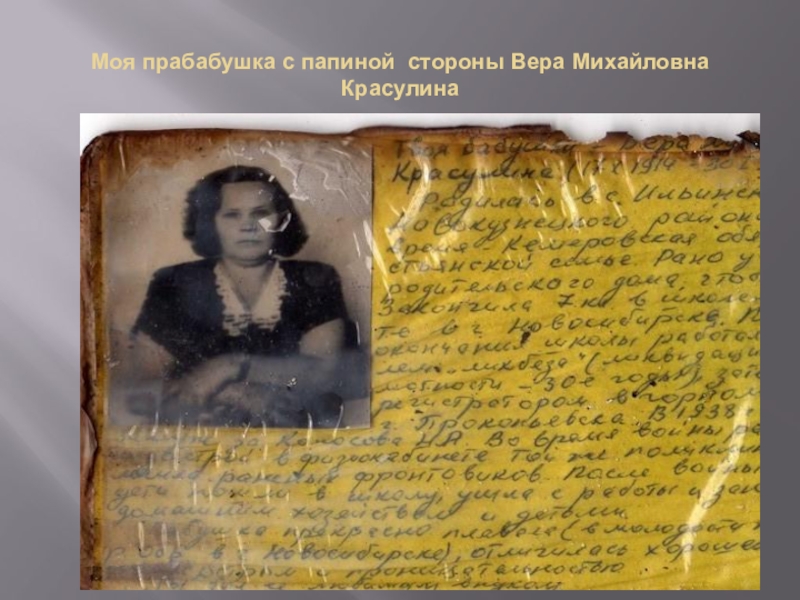 Моя прабабушка с папиной стороны Вера Михайловна
Красулина
Твоя бабушка Вера
Красулина 1914
Родилась в с Ильинск
Новокузнецкого район
время Кемеровская обл
стьянской семье Рано у
родительского дома, что
Закончила 7 кл в школе
в г Новосибирске.
окончания школы работа
лем „ликбеза" (ликвидаци
мотности - 30е годы), зат
регистратором в горпол
г. Прокопьевска. В 1938
за Колосова Н.А. Во время войны ра
в физиокабинете той же поликлин
раненых фронтовиков. После войны
дети пошли в школу, ушла с работы и зан
домашним хозяйством и детьми
бабушка прекрасно плавала (в молодости
Обь в г Новосибирске), отличалась хороше
и проницательностью
и любимым внуком